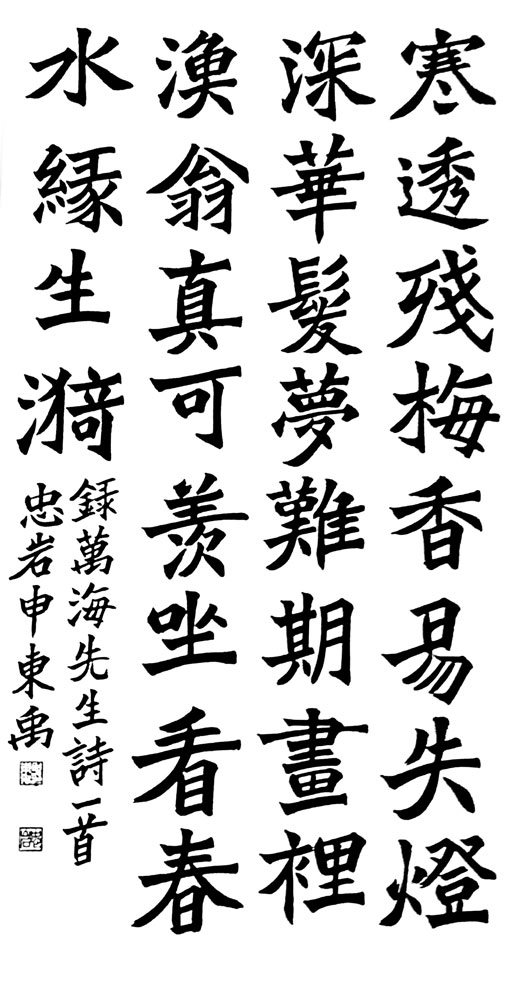 寒透殘梅香易失燈
深華髮夢難期畫裡
漁翁真可羨坐看春
水綠生漪
錄萬海先生詩一首
忠岩申東禹